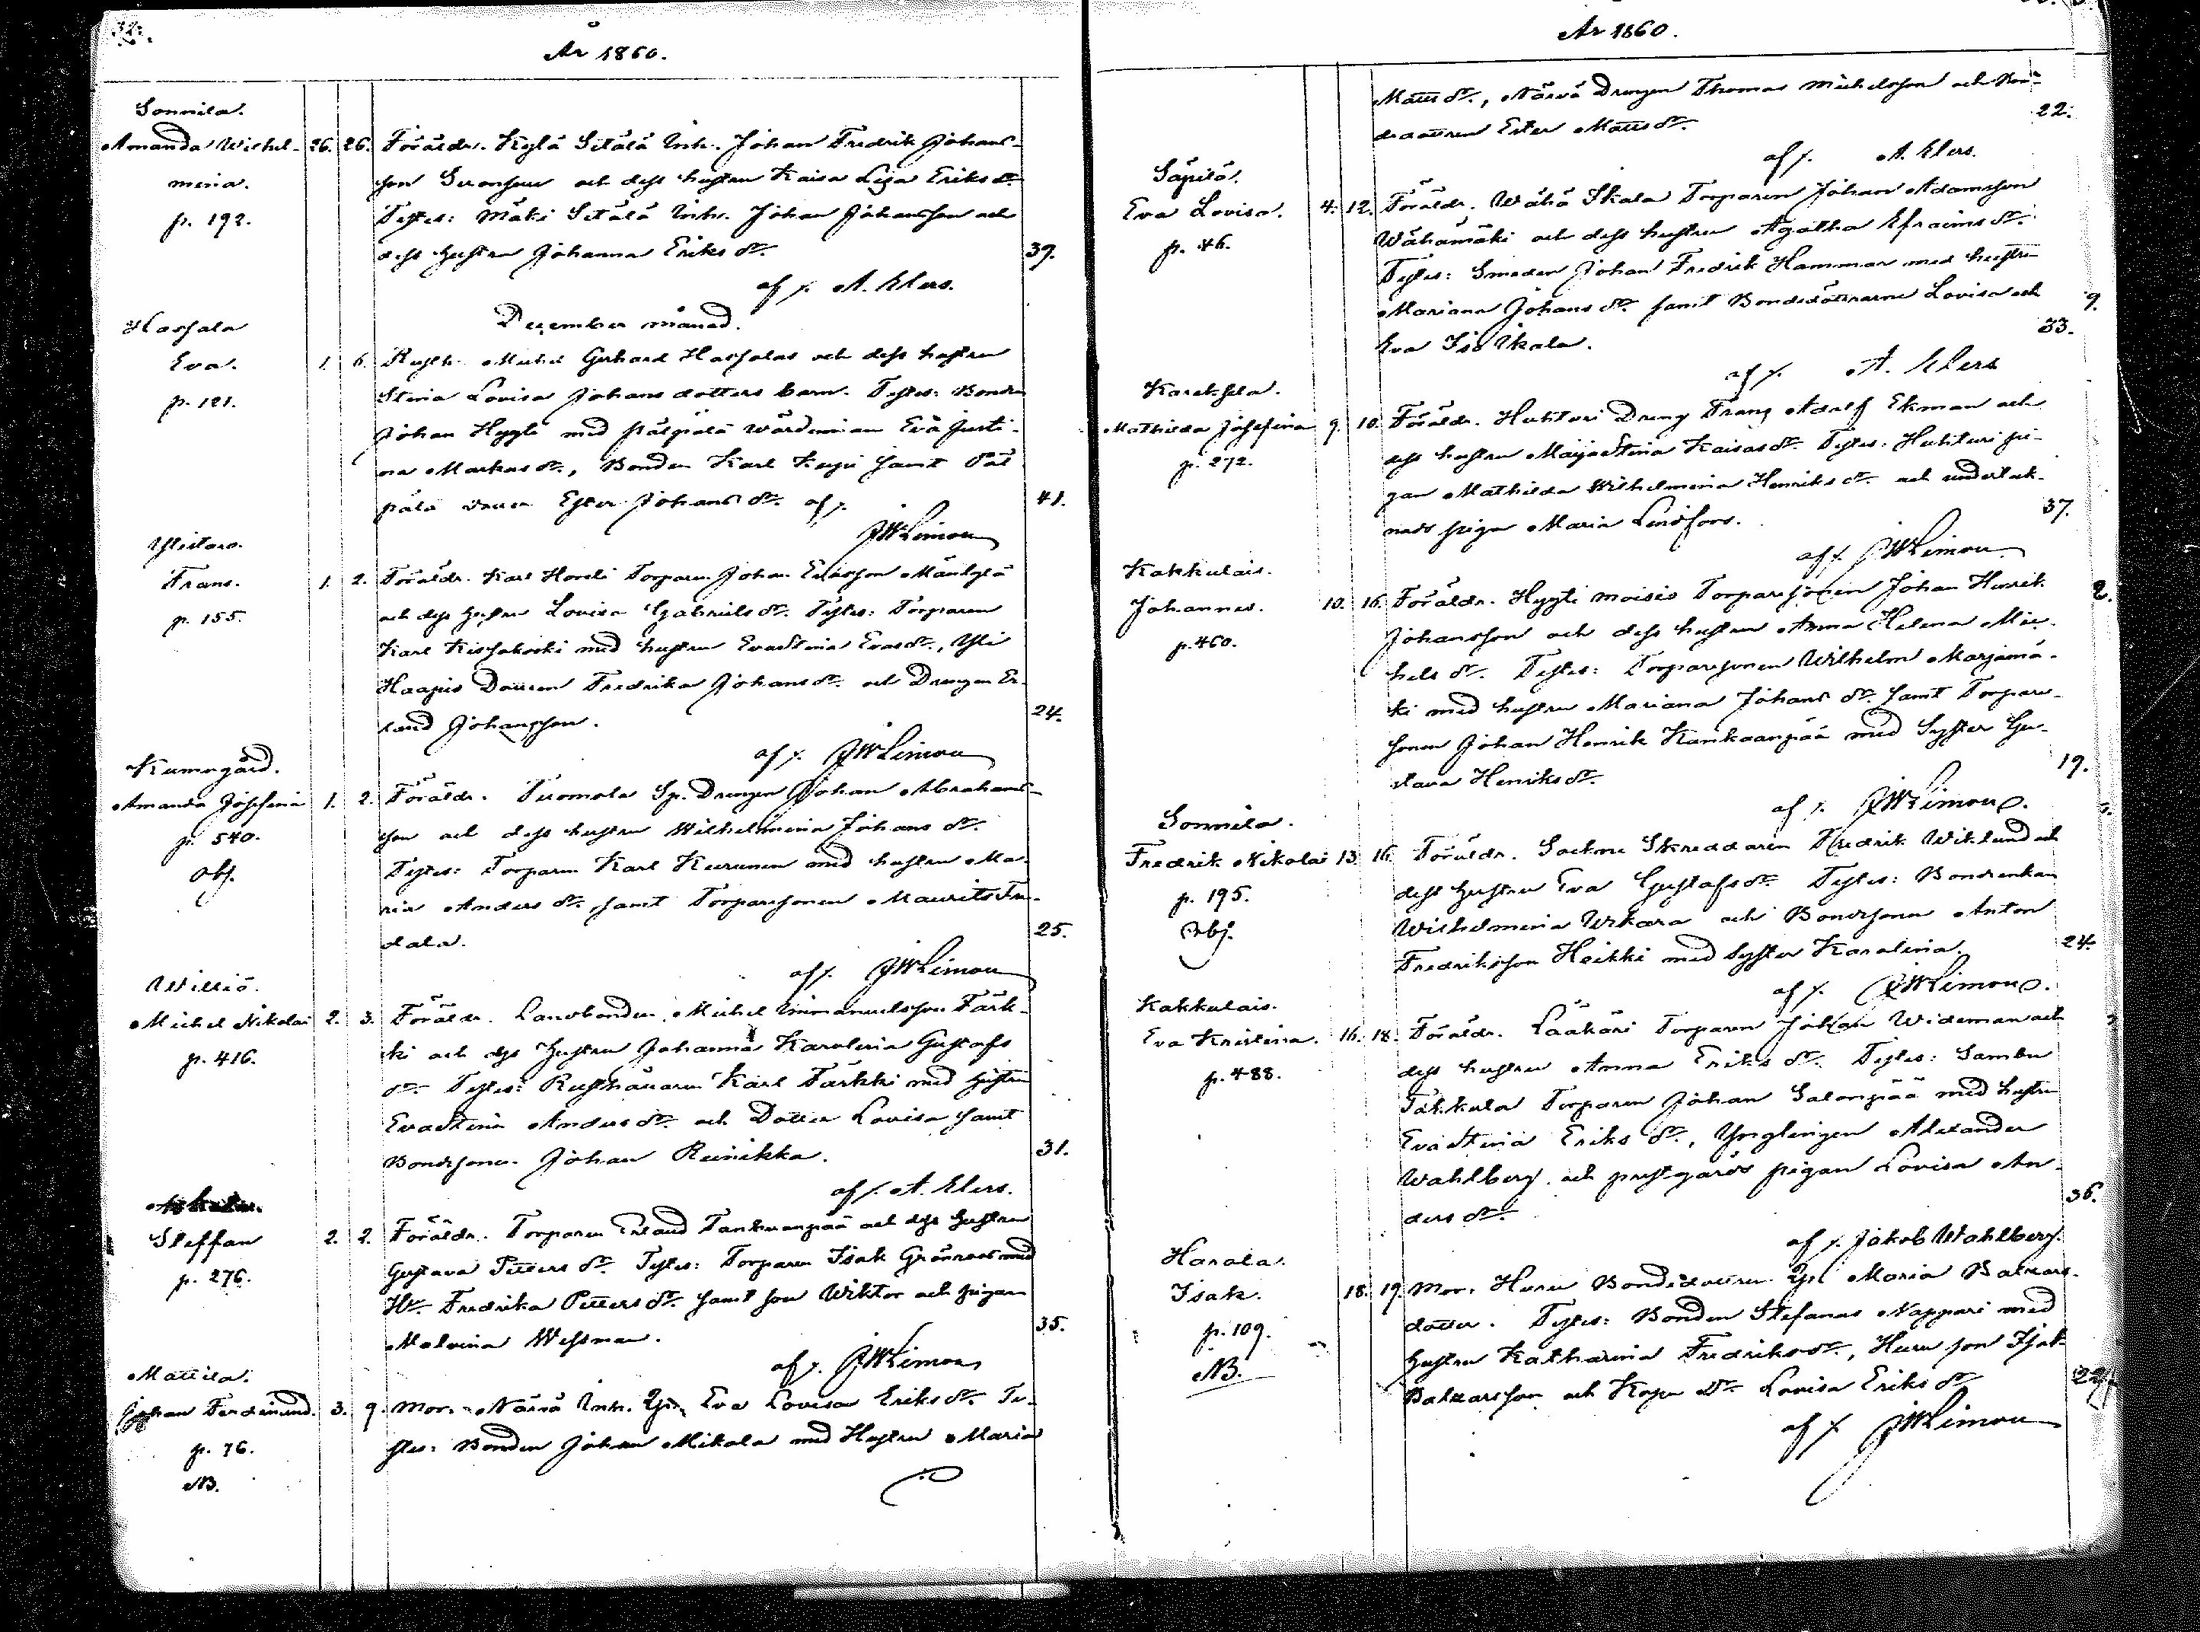 År 1860.
Sonnila.
Amanda Wilhel- 26. 26. Föräldr. Kylä Sitälä Inh. Johan Fredrik Johans-
mina. son och dess hustru Kaisa Lisa Eriks dr.
p. 192. Testes: Mäki Sitälä Inh. Johan Johansson och
dess hustru Johanna Eriks dr. 39.
af /. A. Elers.
December månad.
Hassala
Eva. 1. 6. Rusth. Michel Gerhard Hassalas och dess hustru
p. 121. Stina Lovisa Johans dotters barn. Testes: Bonden
Johan Hygli med wärdinnan Eva Justi-
na Markus dr., Bonden Karl samt Päi
pälä Ester Johans dr. af /. 41.
JWLimon
Ylistaro.
Frans. 1. 2. Föräldr. Karl Hordi Torparen Johan Eriksson Mäntylä
p. 155. och dess hustru Lovisa Gabriels dr. Testes: Torparen
Karl med hustru Evastina Evas dr., Yli
Haapio Dottren Fredrika Johans dr. och Drengen Er-
land Johansson. 24.
af /. JWLimon
Kumogård.
Amanda Josefina 1. 2. Föräldr. Tuomola Sp. Drengen Johan Abrahams-
p. 540. son och dess hustru Wilhelmina Johans dr.
Obs. Testes: Torparen Karl Keerunen med hustru Ma-
ria Anders dr. samt Torparesonen Maurits
dala. 25.
af /. JWLimon
Williö.
Michel Nikolai 2. 3. Föräldr. Landbonden Michel Immanuelsson Färk-
p. 416. ki och dess hustru Johanna Karolina Gustafs
dr. Testes: Rusthållaren Karl Färkki med hustru
Evastina Anders dr. och Dotter Lovisa samt
Bondesonen Johan Reinikka. 31.
af /. A. Elers.
Steffan 2. 2. Föräldr. Torparen Erland Tankuanpää och dess hustru
p. 276. Gustava Petters dr. Testes: Torparen Isak Grönroos med
Hu. Fredrika Petters dr. samt son Wiktor och pigan
Malvina Wessman. 35.
af /. JWLimon
Mattila.
Johan Ferdinand. 3. 9. Mor. Närvä Inh. Eva Lovisa Eriks dr. Te-
p. 76. stes: Bonden Johan Mikola med Hustru Maria
NB.
År 1860.
Matts dr., Närvä Drengen Thomas Michelsson och Bon-
dedottren Ester Matts dr. 22.
af /. A. Elers.
Säpilä.
Eva Lovisa. 4. 12. Föräldr. Wähä Ikala Torparen Johan Adamsson
p. 46. Wähämäki och dess hustru Agatha Efraims dr.
Testes: Smeden Johan Fredrik Hammar med hustru
Mariana Johans dr. samt Bondedöttrarne Lovisa och
Eva Iso Ikala. 33.
af /. A. Elers
Kareksela.
Mathilda Josefina 9. 10. Föräldr. Huhturi Dreng Frans Adolf Ekman och
p. 272. dess hustru Maijastina Kaisas dr. Testes: Huhturi pi-
gan Mathilda Wilhelmina Henriks dr. och
piga Maria Lindfors. 37.
af /. JWLimon
Kakkulais.
Johannes. 10. 16. Föräldr. Hygli moisio Torparesonen Johan Henrik
p. 460. Johansson och dess hustru Anna Helena Mic-
hels dr. Testes: Torparesonen Wilhelm Marjamä-
ki med hustru Mariana Johans dr. samt Torpare-
sonen Johan Henrik Kankaanpää med Syster Gu-
stava Henriks dr. 19.
af /. JWLimon.
Sonnila.
Fredrik Nikolai 13. 16. Föräldr. Sockne Skreddaren Fredrik Wiklund och
p. 195. dess hustru Eva Gustafs dr. Testes: Bondenkan
Obs. Wilhelmina Urkara och Bondesonen Anton
Fredriksson Heikki med Syster Karolina. 24.
af /. JWLimon.
Kakkulais.
Eva Kristina. 16. 18. Föräldr. Lääkäri Torparen Johan Wideman och
p. 488. dess hustru Anna Eriks dr. Testes: Sambu
Takkula Torparen Johan Salonpää med hustru
Evastina Eriks dr., Ynglingen Alexander
Wahlberg och prestgårds pigan Lovisa An-
ders dr. 36.
af /. Jakob Wahlberg.
Harola.
Isak. 18. 19. Mor. Huru Bondedottren Maria Baltzars-
p. 109. dotter. Testes: Bonden Stefanus Nappari med
NB. hustru Katharina Fredriks dr., Huru son Isak
Baltzarsson och Kopu Dr. Lovisa Eriks dr. 22
af /. JWLimon